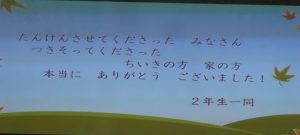 たんけんさせてくださった　みなさん
つきそってくださった
ちいきの方　家の方
本当に　ありがとう　ございました！
２年生一同